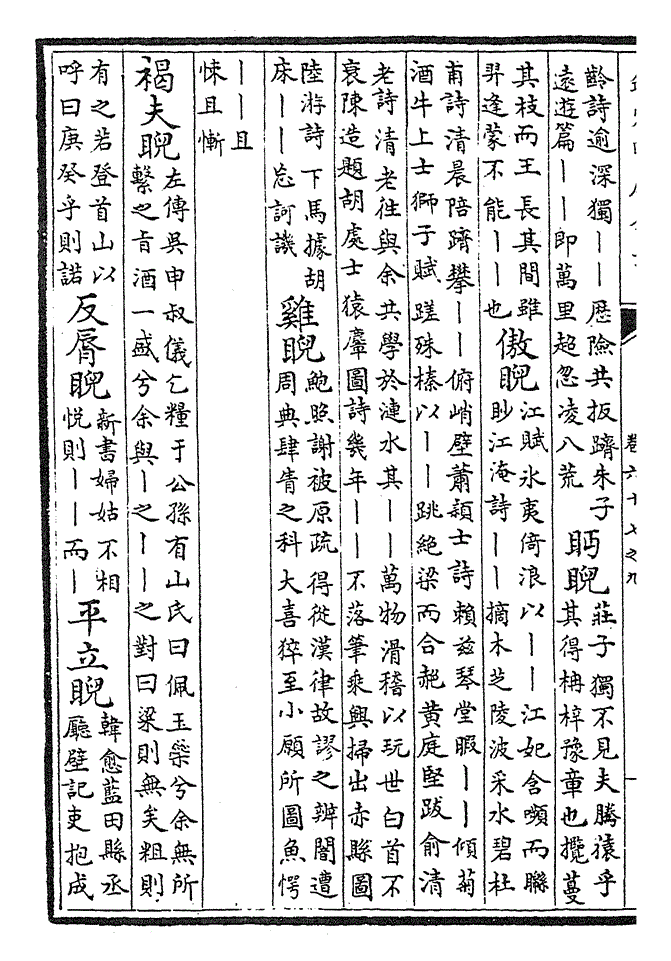 卷六十七之九
齡詩逾深獨丨丨歷險共扳躋朱子
遠遊篇丨丨即萬里超忽凌八荒
眄睨
莊子獨不見夫騰猿乎
其得枏梓豫章也攬蔓
其枝而王長其間雖
羿逢蒙不能丨丨也
傲睨
江賦氷夷倚浪以丨丨江妃含嚬而矊
眇江淹詩丨丨摘木芝陵波采水碧杜
甫詩清晨陪躋攀丨丨俯峭壁蕭穎士詩賴兹琴堂暇丨丨傾菊
酒牛上士獅子賦蹉殊榛以丨丨跳絶梁而合赩黄庭堅跋俞清
老詩清老徃與余共學於漣水其丨丨萬物滑稽以玩世白首不
衰陳造題胡處士猿麞圖詩幾年丨丨不落筆乘興掃出赤縣圖
陸游詩下馬據胡
床丨丨忘訶譏
雞睨
鮑照謝被原疏得從漢律故謬之辨闇遭
周典肆眚之科大喜猝至小願所圖魚愕
丨丨且
悚且慚
褐夫睨
左傳吳申叔儀乞糧于公孫有山氏曰佩玉橤兮余無所
繫之旨酒一盛兮余與丨之丨丨之對曰粱則無矣粗則
有之若登首山以
呼曰庚癸乎則諾
反脣睨
新書婦姑不相
悅則丨丨而丨
平立睨
韓愈藍田縣丞
廳壁記吏抱成